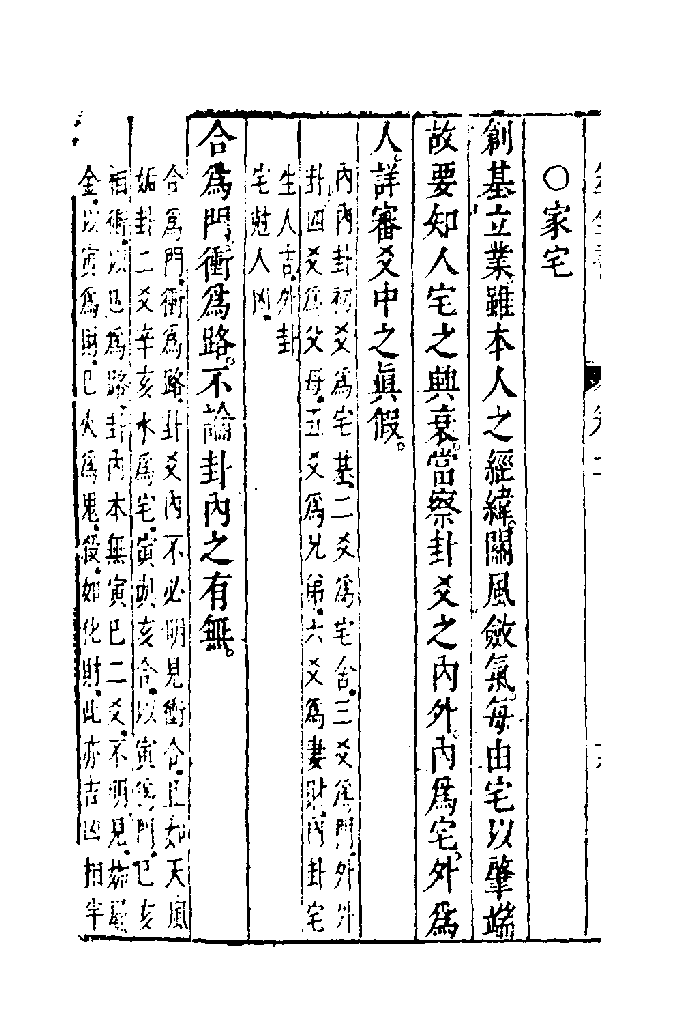 ○家宅
創基立業。雖本人之經緯。關風斂氣。每由宅以肇端
故要知人宅之興衰。當察卦爻之內外。內爲宅。外爲
人。詳審爻中之眞假。
內內卦初爻爲宅基。二爻爲宅舍。三爻爲門。外外
卦四爻爲父母。五爻爲兄弟。六爻爲妻財。內卦宅
生人吉。外卦
宅尅人凶。
合爲門。衝爲路。不論卦內之有無。
合爲門。衝爲路。卦爻內不必明見衝合。且如天風
姤卦二爻辛亥水爲宅。寅與亥合。以寅爲門。巳亥
相衝。以巳爲路。卦內本無寅巳二爻。不明見。姤屬
金。以寅爲財。巳火爲鬼。殺如化財。此亦吉凶相半